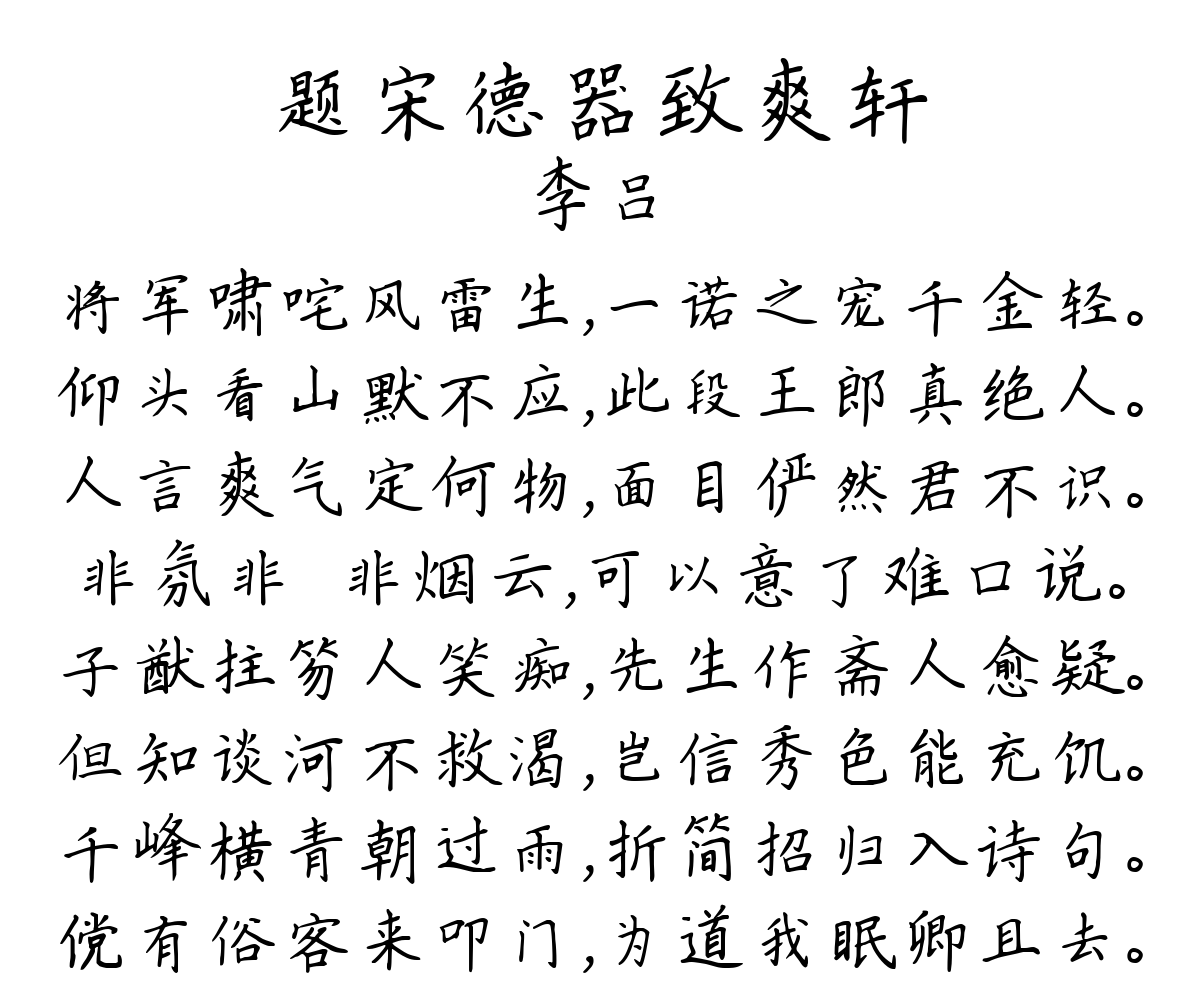 题宋德器致爽轩
李吕
将军啸咤风雷生,一诺之宠千金轻。
仰头看山默不应,此段王郎真绝人。
人言爽气定何物,面目俨然君不识。
非氛非 非烟云,可以意了难口说。
子猷拄笏人笑痴,先生作斋人愈疑。
但知谈河不救渴,岂信秀色能充饥。
千峰横青朝过雨,折简招归入诗句。
傥有俗客来叩门,为道我眠卿且去。